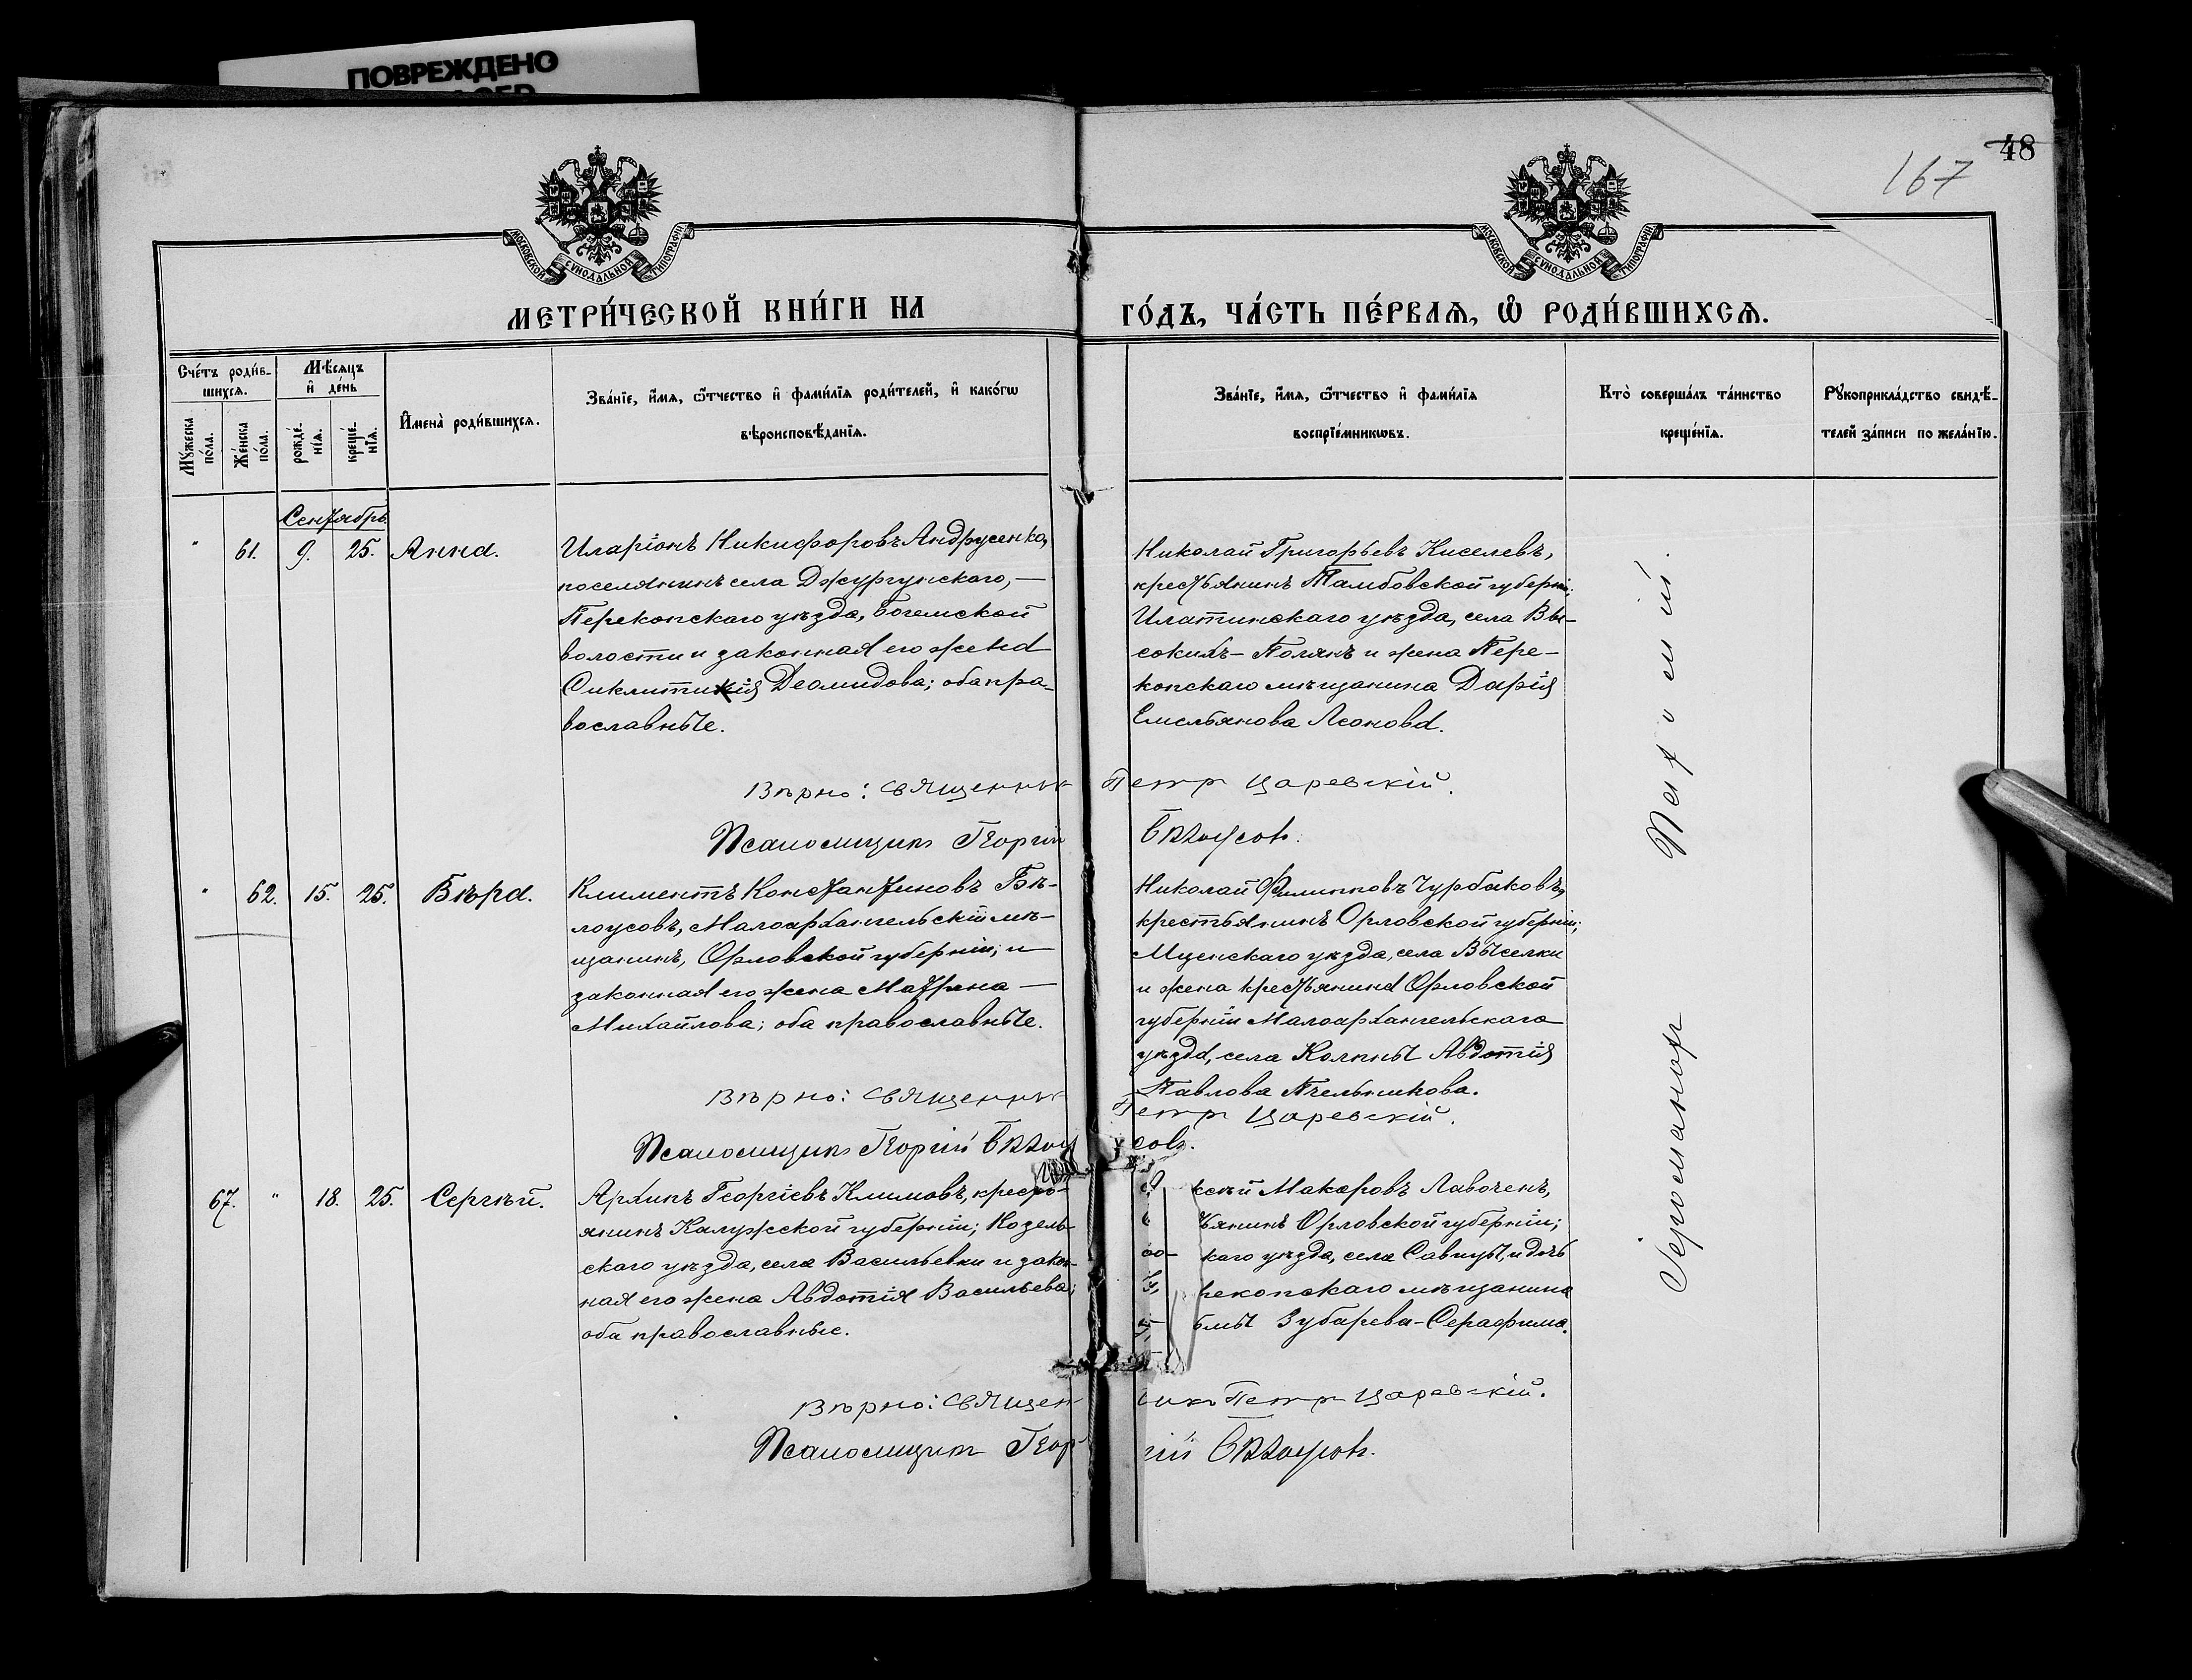 ПОВРЕЖДЕНО
48
167
МОСКОВСКОЙ СУНОДАЛЬНОЙ ТИПОГРАФІИ
МОСКОВСКОЙ СУНОДАЛЬНОЙ ТИПОГРАФІИ
МЕТРИ́ЧЕСКОЙ КНИ́ГИ НА ГО́ДЪ, ЧА́СТЬ ПЕ́РВАЯ, Ѡ РОДИ́ВШИХСЯ.
Сче́тъ роди́в-
шихся.
Му́жеска по́ла.
Же́нска по́ла.
Мѣ́сяцъ
и҆ де́нь
рожде́-
нїя.
креще́-
нїя.
И҆мена̀ роди́вшихся.
Зва́нїе, и҆́мя, ѻ҆́тчество и҆ фами́лїя роди́телей, и҆ како́гѡ
вѣроисповѣ́данїя.
Зва́нїе, и҆́мя, ѻ҆́тчество и҆ фами́лїя
воспрїе́мникѡвъ.
Кто̀ соверша́лъ та́инство
креще́нїя.
Рꙋкоприкла́дство свидѣ́-
телей за́писи по жела́нїю.
Сентябрь
" 61. 9. 25. Анна.
Иларіонъ Никифоровъ Андрусенко,
поселянинъ села Джургунскаго, —
Перекопскаго уѣзда, Богемской
волости и законная его жена
Сиклитикія Деомидова; оба пра-
вославные.
Николай Григорьевъ Киселевъ,
крестьянинъ Тамбовской губерніи;
Илатинскаго уѣзда, села Вы-
сокихъ-Полянъ и жена Пере-
копскаго мѣщанина Дарія
Емельянова Леонова.
Вѣрно: священникъ Петръ Царевскій.
Псаломщикъ Георгій Бѣлоусовъ.
" 62. 15. 25. Вѣра.
Климентъ Константиновъ Бѣ-
лоусовъ, Малоархангельскій мѣ-
щанинъ, Орловской губерніи; и
законная его жена Матрена —
Михайлова; оба православные.
Николай Филипповъ Чурбаковъ,
крестьянинъ Орловской губерніи;
Мценскаго уѣзда, села Выселки
и жена крестьянина Орловской
губерніи Малоархангельскаго
уѣзда, села Колпны Авдотія
Павлова Пчельникова.
Вѣрно: священникъ Петръ Царевскій.
Псаломщикъ Георгій Бѣлоусовъ.
67. " 18. 25. Сергѣй.
Архипъ Георгіевъ Климовъ, кресть-
янинъ Калужской губерніи; Козель-
скаго уѣзда, села Васильевки и закон-
ная его жена Авдотія Васильева;
оба православные.
ксѣй Макаровъ Лавоченъ,
ьянинъ Орловской губерніи;
каго уѣзда, села Савпуы, и дочь
рекопскаго мѣщанина
Зубарева-Серафима.
Вѣрно: священникъ Петръ Царевскій.
Псаломщикъ Георгій Бѣлоусовъ.
Іеромонахъ